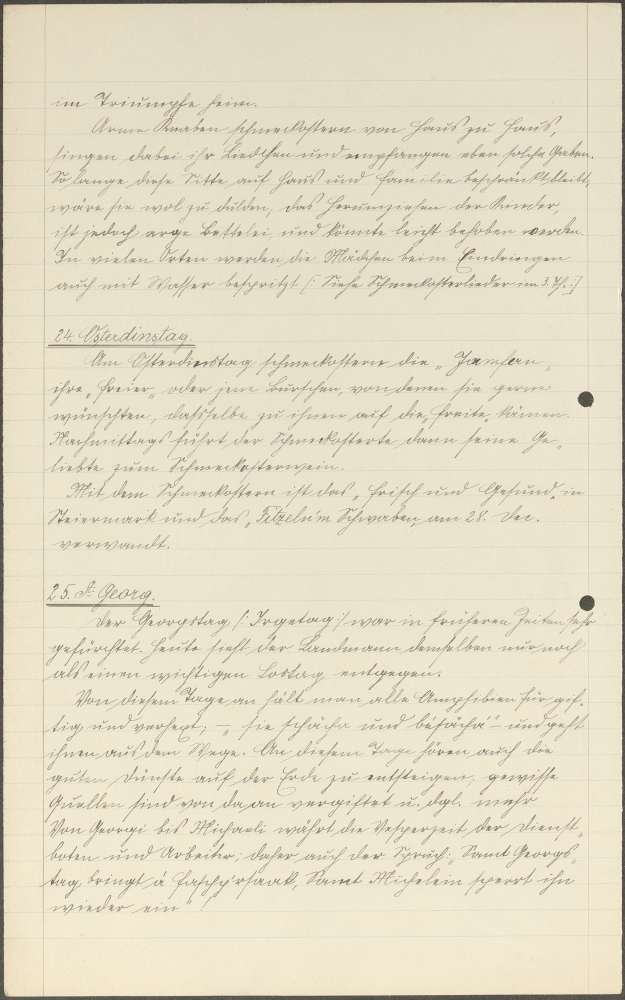 im Triumphe heim.
Arme Knaben schmeckostern von Haus zu Haus,
singen dabei ihr Liedchen und empfangen eben solche Gaben.
So lange diese Sitte auf Haus und Familie beschränkt bleibt,
wäre sie wol zu dulden, das Herumziehen der Kinder,
ist jedoch arge Bettelei und könnte leicht behoben werden.
In vielen Orten werden die Mädchen beim Eindringen
auch mit Wasser bespritzt /: Siehe Schmeckosterlieder im 3. Th. :/
24. Osterdinstag.
Am Osterdienstag schmeckostern die „
ihre „Freier„ oder jene Burschen, von denen sie gerne
wünschten, dass selbe zu ihnen auf die „Freite„ kämen.
Nachmittags führt der Schmeckosterte dann seine Ge„
liebte zum Schmeckosterwein.
Mit dem Schmeckostern ist das „Frisch und Gesund„ in
Steiermark und das „Fitzeln„ in Schwaben, am 28. Dec.
verwandt.
25. St. Georg.
Der Georgstag /: Irgetag :/ war in früheren Zeiten sehr
gefürchtet. Heute sieht der Landmann demselben nur noch
als einen wichtigen Lostag entgegen.
Von diesem Tage an hält man alle Amphibien für gif„
tig und verhext; – „sie und – und geht
ihnen aus dem Wege. An diesem Tage hören auch die
guten Dünste auf der Erde zu entsteigen, gewisse
Quellen sind von da an vergiftet u. dgl. mehr
Von Georgi bis Michaeli währt die Vesperzeit der Dienst„
boten und Arbeiter; daher auch der Spruch: „Sanct Georgs„
tag, bringt á Sanct Michelein sperrt ihn
wieder ein“!